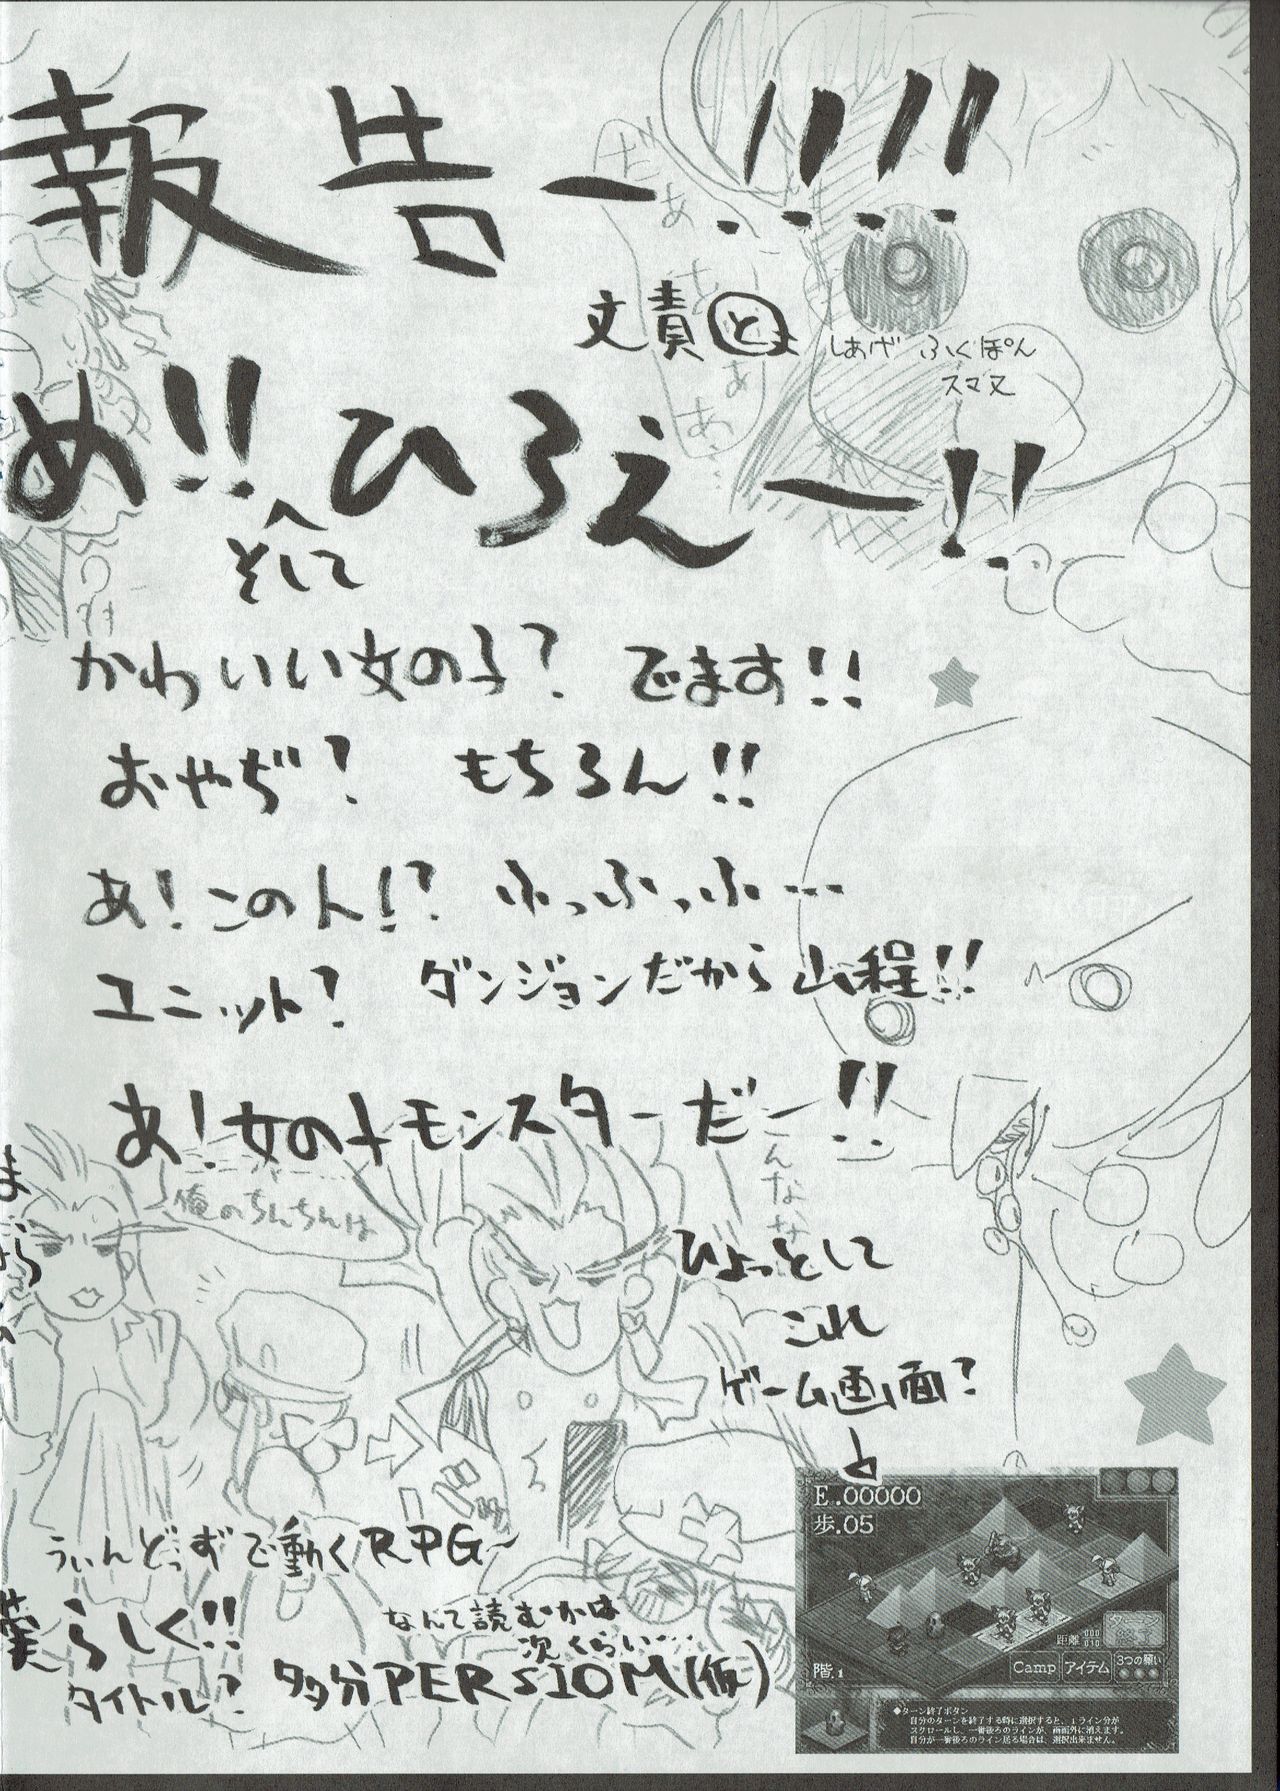 報告ー!!!!
だぁぁぁぁ…
文責と
しあげ ふくぽん
スマヌ
め!! ひろえー!!
そして
かわいい女の子? でます!!
おやぢ? もちろん!!
あ!この人!? ふっふっふ…
ユニット? ダンジョンだから山程!!
あ!女の子モンスターだー!!
俺のちんちんは
んなな
ひょっとして
これ
ゲーム画面?
うぃんどっずで動くRPG~
らしく!!
なんて読むかは
次くらい…
タイトル? タタ分PERSIOM(仮)
E.00000
歩.05
ターン
終了
距離 000/010
階.1
Camp アイテム 3つの願い
◆ターン終了ボタン
自分のターンを終了する時に選択すると、1ライン分が
スクロールし、一番後ろのラインが、画面外に消えます。
自分が一番後ろのライン居る場合は、選択出来ません。